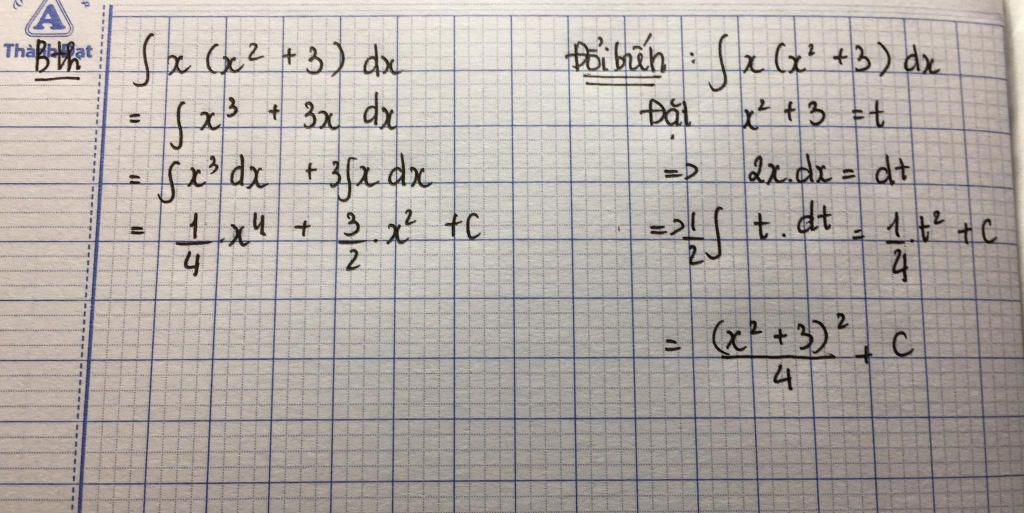 A
Thành Đạt
Bth ∫ x (x² + 3) dx
= ∫ x³ + 3x dx
= ∫ x³ dx + 3∫x dx
= 1/4 . x⁴ + 3/2 . x² + C
Đổi biến : ∫ x (x² + 3) dx
Đặt x² + 3 = t
=> 2x.dx = dt
=> 1/2 ∫ t . dt = 1/4 . t² + C
= (x² + 3)²/4 + C